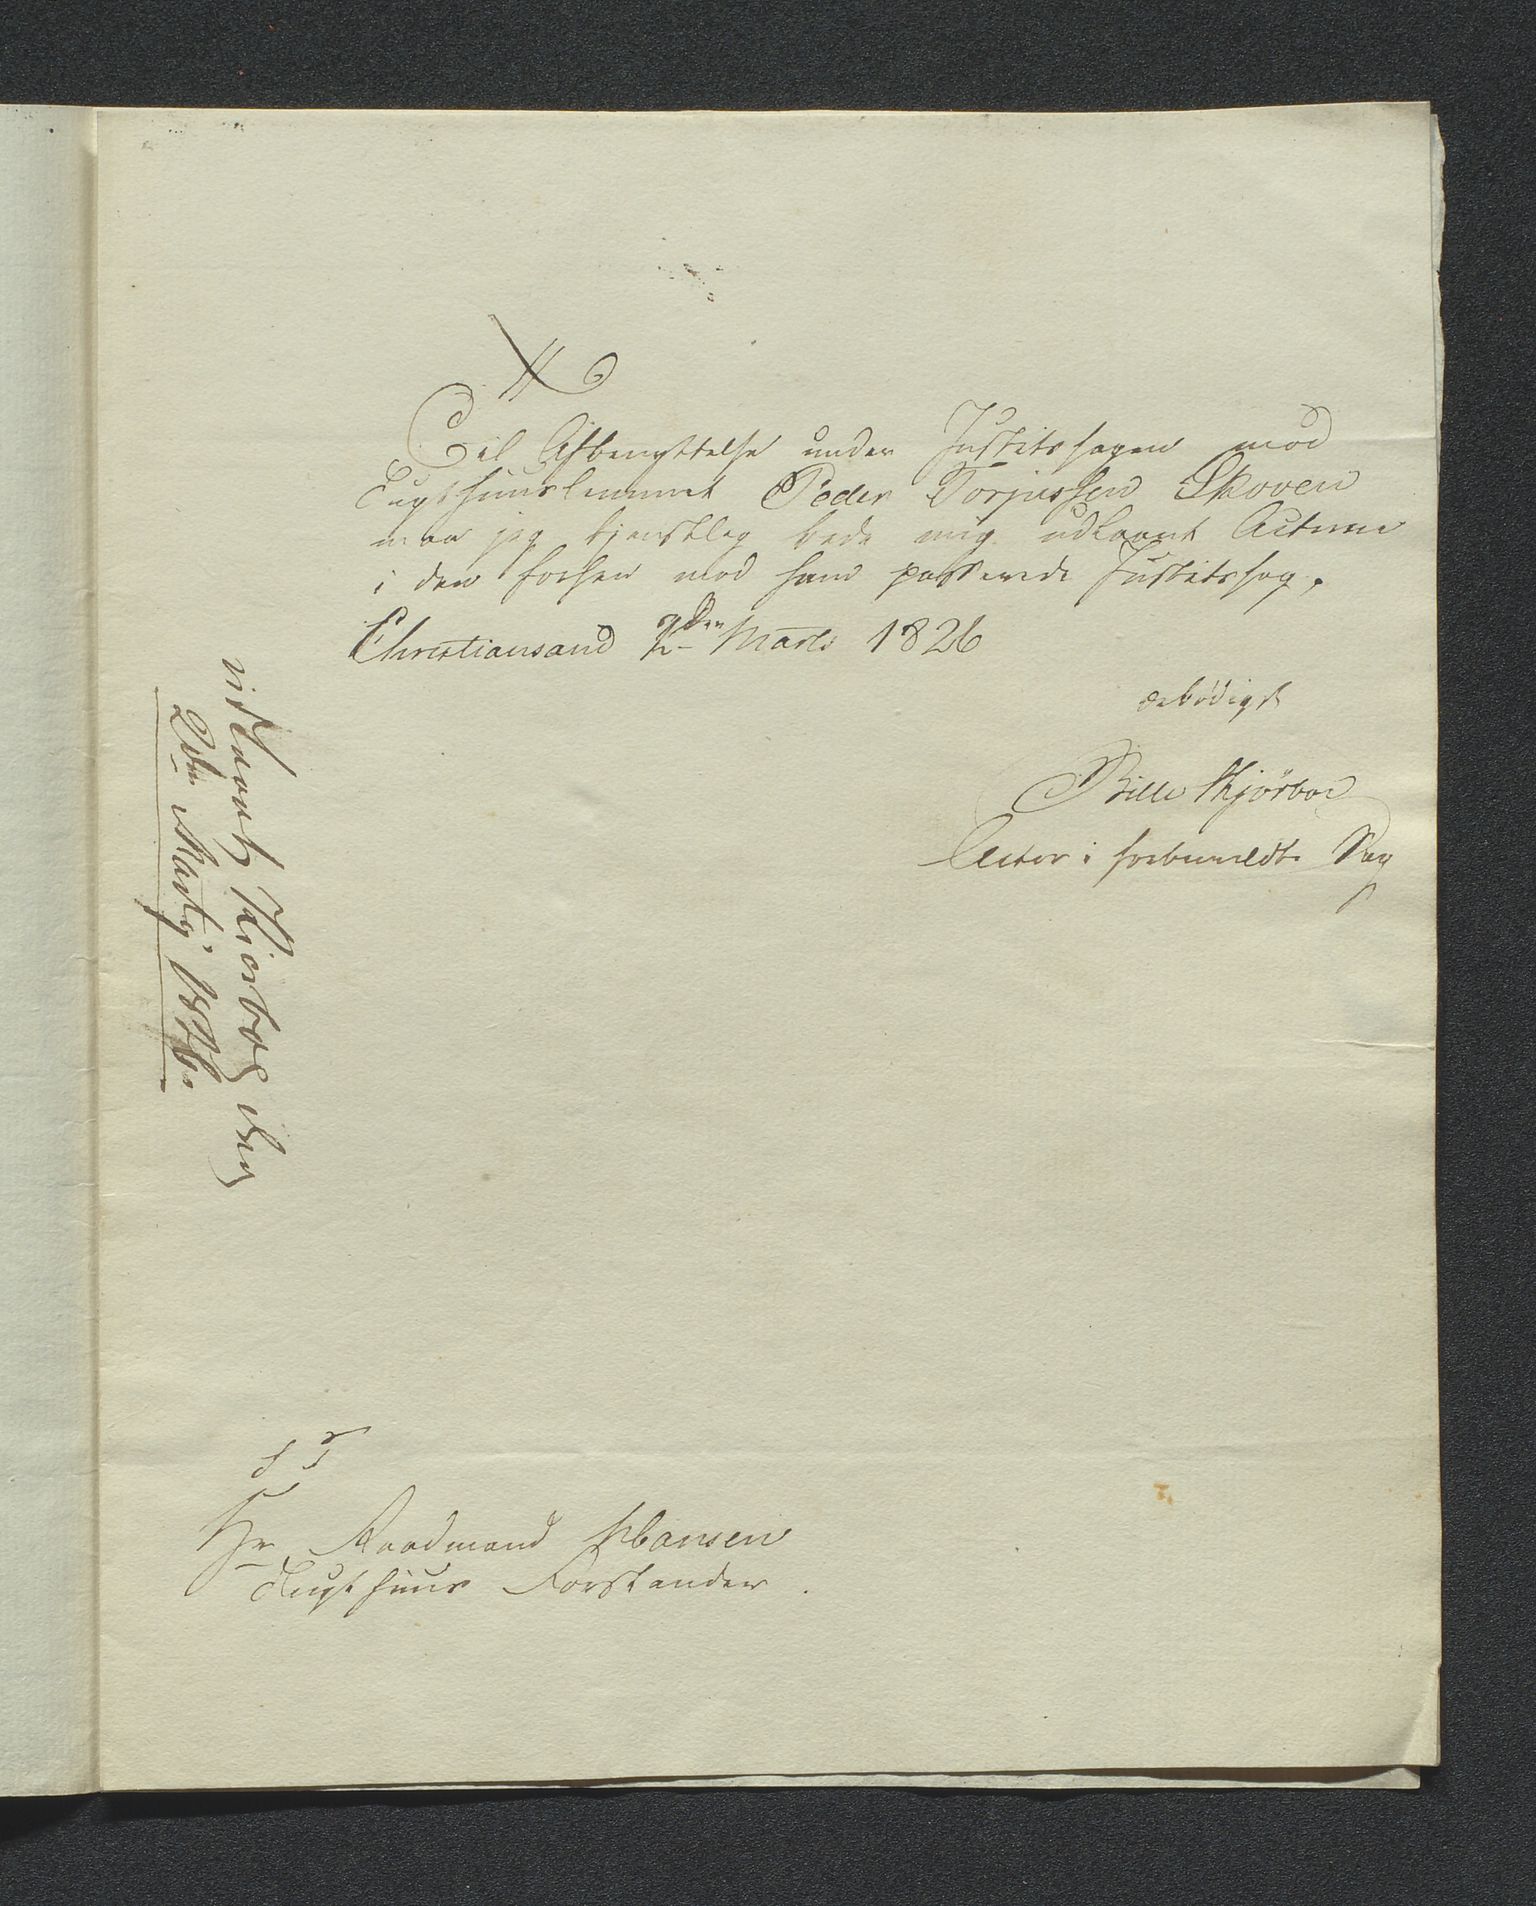 Til Afbenyttelse under Justitssagen mod
Tugthuuslemmet Peder Torjussen Skoven
maa jeg tjenstlig bede mig udlaant Acterne
i den forhen mod ham passerede Justitssag.
Christiansand 2den Marts 1826
ærbødigst
Bille Kjørboe
Actor i forbemeldte Sag
Kiørboe den
2den Martj 1826.
Hr Raadmand Hansen
Tugthuus Forstander.